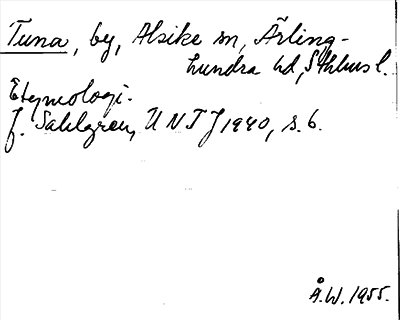 Tuna, by, Alsike sn, Ärling-
hundra hd, Sthlms l.
Etymologi.
J. Sahlgren, UNT J 1940, s. 6.
Å.W. 1955.